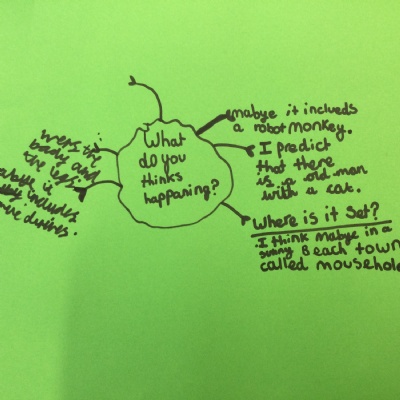 What
do you
thinks
happaning?
mabye it inclueds
a robot monkey.
I predict
that there
is a old man
with a cat.
Where is it Set?
I think Mabye in a
sunny Beach town
called mousehole
wers the
body and
the legs